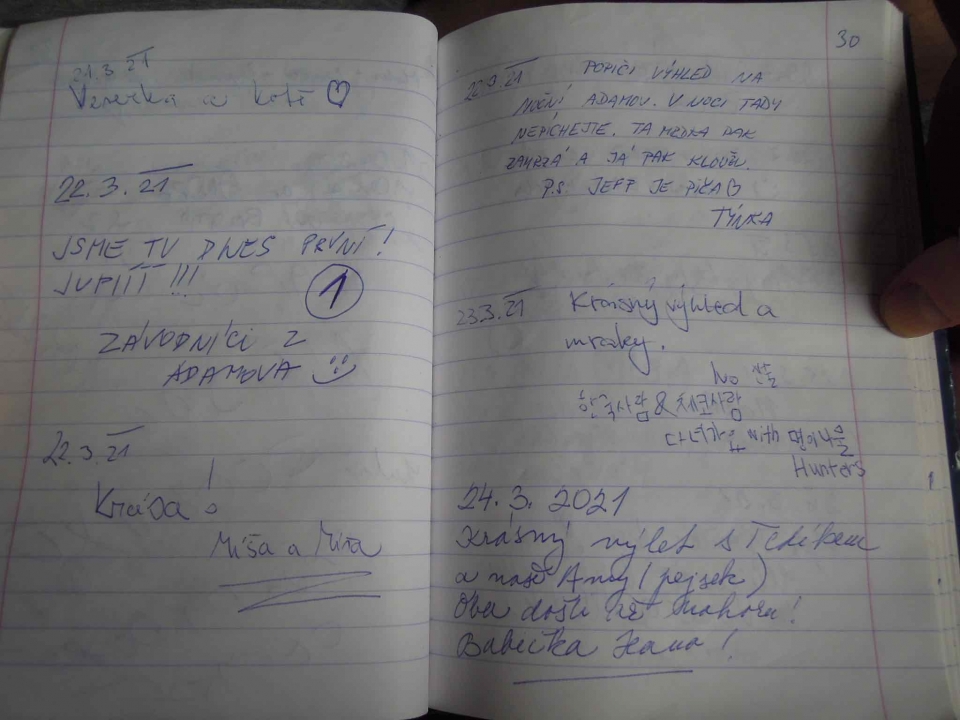 21.3.21
a kotě ♡
22.3.21
JSME TU DNES PRVNÍ!
JUPÍÍÍ !!!
1
ZÁVODNÍCI Z
ADAMOVA
22.3.21
Krása!
Míša a Míra
30
21 POPIČI VÝHLED NA
NOČNÍ ADAMOV. V NOCI TADY
NEPÍCHEJTE. TA MRDKA PAK
ZAMRZÁ A JÁ PAK KLOUŽU.
P.S. JEPT JE PIČA
TÝNKA
23.3.21 Krásný výhled a
mraky.
No
한국사람 & 체코사람
다녀가요 with 명이나물
Hunters
24.3.2021
Krásný výlet s
a naší Amy (pejsek)
Oba došli až nahoru!
Babička Hana!